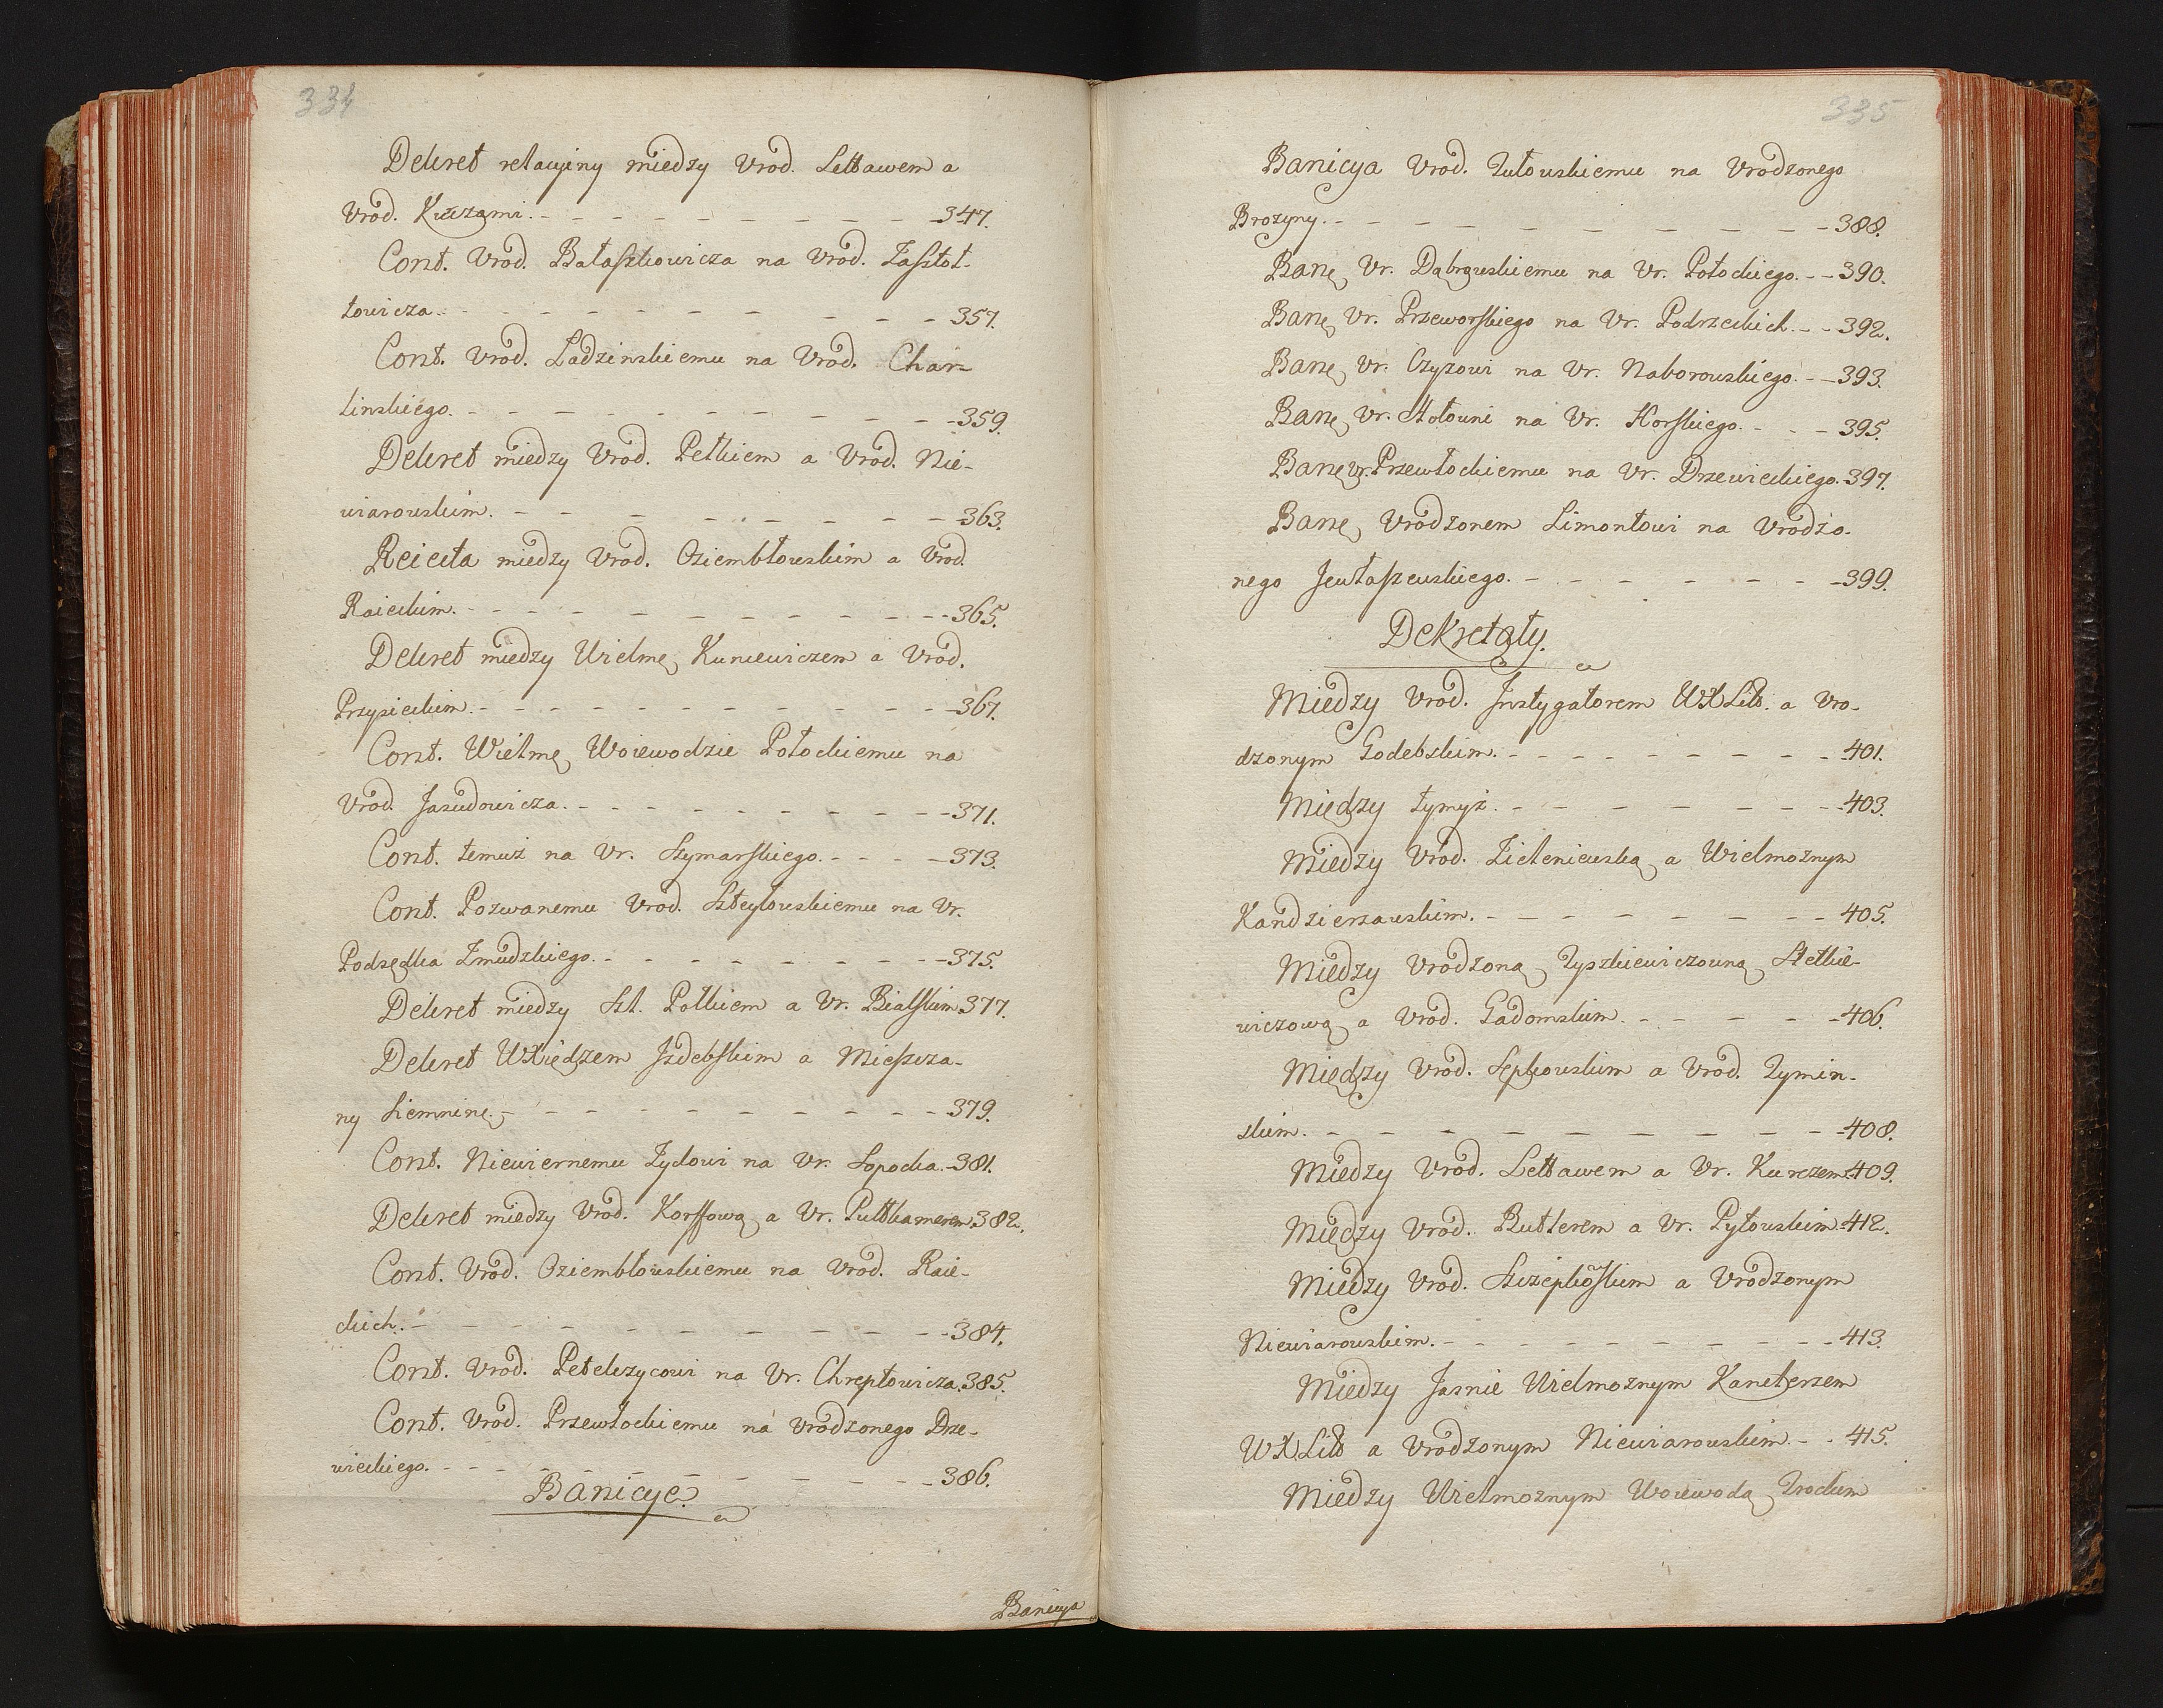 334
Dekret relacyiny miedzy Vrod. Lettawem a
Vrod. Kurczami. - - - - - - - - - 347.
Cont. Vrod. Bałaszkowicza na Vrod. Zasztoł-
towicza. - - - - - - - - - - 357.
Cont. Vrod. Ladzinskiemu na Vrod. Char-
linskiego. - - - - - - - - - - 359.
Dekret miedzy Vrod. Petkiem a Vrod. Nie-
wiarowskim. - - - - - - - - - 363.
Reiecta miedzy Vrod. Oziembłowskim a Vrod.
Raieckim. - - - - - - - - - - 365.
Dekret miedzy Wielmę Kuncewiczem a Vrod.
Przysieckim. - - - - - - - - - - 367.
Cont. Wielmę Woiewodzie Potockiemu na
Vrod. Jasudowicza. - - - - - - - - 371.
Cont. temuż na Vr. Szymarskiego. - - - - 373.
Cont. Pozwanemu Vrod. Szteytowskiemu na Vr.
Podsędka Zmudzkiego. - - - - - - - - 375.
Dekret miedzy Szl. Polkiem a Vr. Bialskim 377.
Dekret WXiędzem Jzdebskim a Mieszcza-
ny Siemninę. - - - - - - - - - 379.
Cont. Niewiernemu Zydowi na Vr. Sopocka. - 381.
Dekret miedzy Vrod. Korffową a Vr. Puttkamerem 382.
Cont. Vrod. Oziembłowskiemu na Vrod. Raie-
ckich. - - - - - - - - - - 384.
Cont. Vrod. Petelczycowi na Vr. Chreptowicza. 385.
Cont. Vrod. Przewłockiemu na Vrodzonego Drze-
wieckiego. - - - - - - - - - - 386.
Banicye.
Banicya
335
Banicya Vrod. Tutowskiemu na Vrodzonego
Brozyny. - - - - - - - - - 388.
Banę Vr. Dąbrowskiemu na Vr. Potockiego. - - 390.
Banę Vr. Przeworskiego na Vr. Podrzeckich. - - 392.
Banę Vr. Czyzowi na Vr. Naborowskiego. - - 393.
Banę Vr. Hołowni na Vr. Horskiego. - - - 395.
Banę Vr. Przewłockiemu na Vr. Drzewieckiego. 397.
Banę Vrodzonem Limontowi na Vrodzo-
nego Jewłaszewskiego. - - - - - - - 399.
Dekretały.
Miedzy Vrod. Jnstygatorem WXLitt. a Vro-
dzonym Godebskim. - - - - - - - - 401.
Między tymyż. - - - - - - - - 403.
Miedzy Vrod. Zieleniewską a Wielmoznym
Kandzierzawskim. - - - - - - - - 405.
Miedzy Vrodzoną Tyszkiewiczowną Stetkie-
wiczową a Vrod. Gadomskim. - - - - - 406.
Między Vrod. Sepkowskim a Vrod. Tymin-
skim. - - - - - - - - - - 408.
Miedzy Vrod. Lettawem a Vr. Kurczem. 409.
Między Vrod. Butlerem a Vr. Pytowskim. 412.
Miedzy Vrod. Szczepkoskim a Vrodzonym
Niewiarowskim. - - - - - - - - 413.
Miedzy Jasnie Wielmoznym Kanclerzem
WXLitt a Vrodzonym Niewiarowskim. - - 415.
Miedzy Wielmoznym Woiewodą Trockim